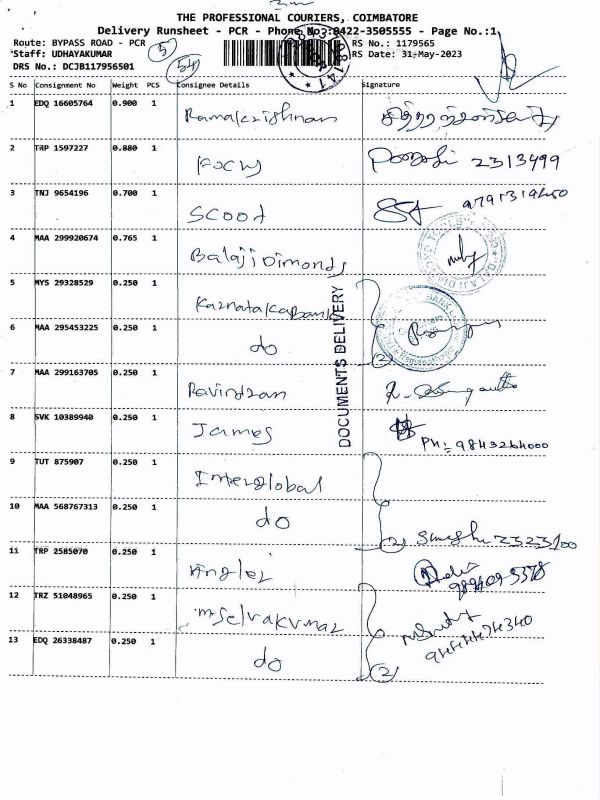 THE PROFESSIONAL COURIERS, COIMBATORE
Delivery Runsheet - PCR - Phone No:0422-3505555 - Page No.:1
Route: BYPASS ROAD - PCR
RS No.: 1179565
Staff: UDHAYAKUMAR
RS Date: 31-May-2023
DRS No.: DCJB117956501
5
54
S No Consignment No Weight PCS Consignee Details Signature
1 EDQ 16605764 0.900 1 Ramakrishnan
2 TRP 1597227 0.880 1 2313499
3 TNJ 9654196 0.700 1 Scoot
4 MAA 299920674 0.765 1 Balaji Dimonds
5 MYS 29328529 0.250 1 Karnataka Bank
6 MAA 295453225 0.250 1 do 2
DOCUMENTS DELIVERY
7 MAA 299163705 0.250 1 Ravindran
8 SVK 10389940 0.250 1 James Ph:- 9843264000
9 TUT 875907 0.250 1 Interglobal
10 MAA 568767313 0.250 1 do 2 2323100
11 TRP 2585070 0.250 1 Angler
12 TRZ 51048965 0.250 1 mselvakumar
13 EDQ 26338487 0.250 1 do 2